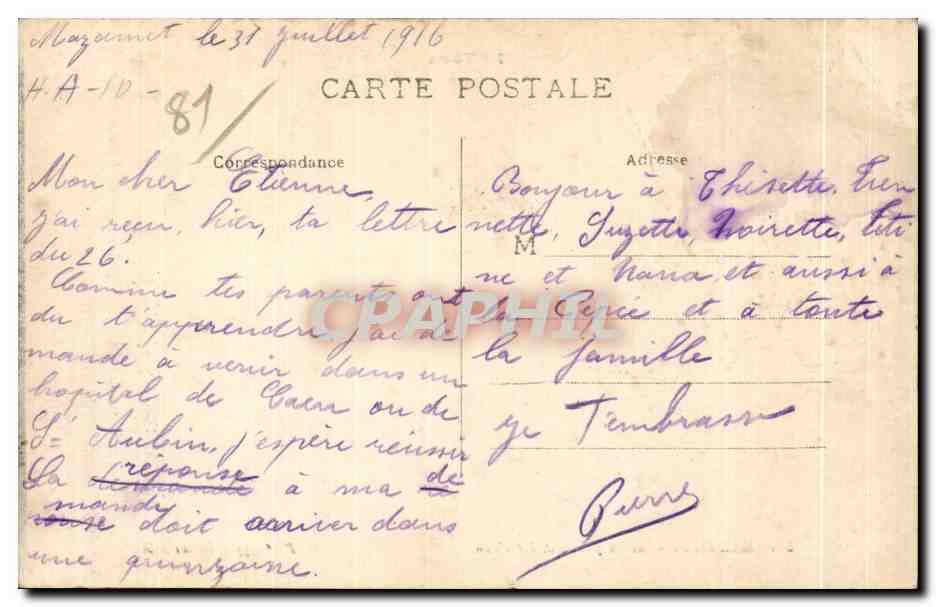 Mazamet le 31 Juillet 1916
H.A-10-
81/
CARTE POSTALE
Correspondance
Adresse
Mon cher Etienne,
j'ai reçu, hier, ta lettre
du 26.
Comme tes parents ont
du t'apprendre j'ai de
mande à venir dans un
hopital de Caen ou de
St Aubin, j'espère réussir
La réponse à ma de
mande doit arriver dans
une quinzaine.
Bonjour à Thisette, Tien
nette, Suzette, Noirette, Titi
M
ne et Nana et aussi à
la Gypie et à toute
la famille
je T'embrasse
Pierre
CPAPHIL